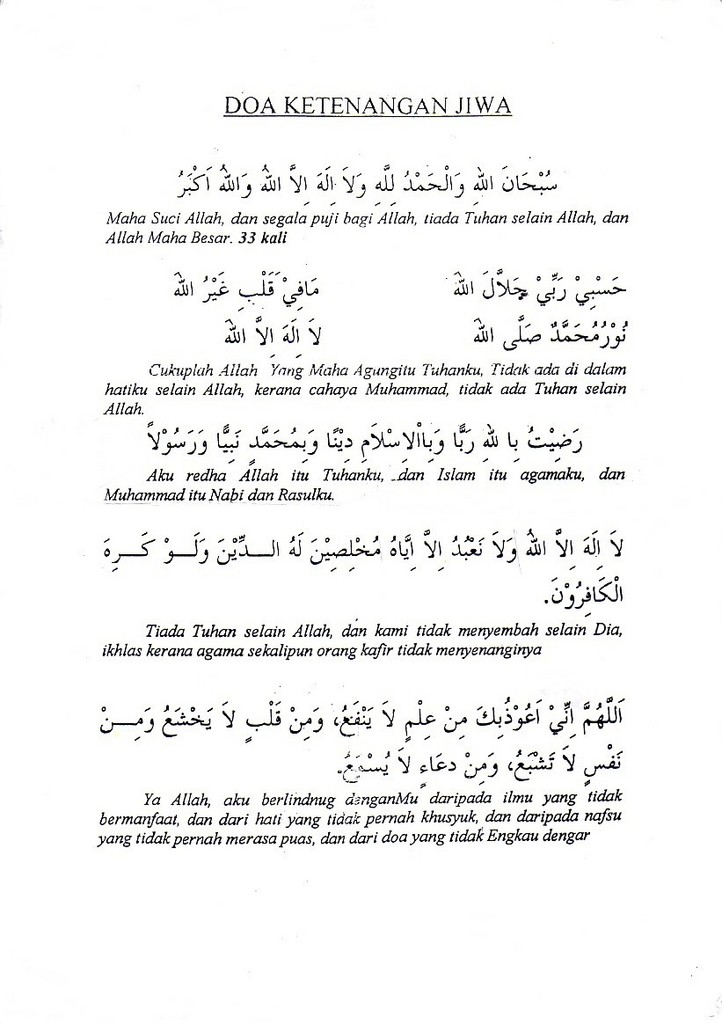 DOA KETENANGAN JIWA
سُبْحَانَ اللهِ وَالْحَمْدُ لِلَّهِ وَلاَ اِلَهَ اِلاَّ اللهُ وَاللهُ اَكْبَرُ
Maha Suci Allah, dan segala puji bagi Allah, tiada Tuhan selain Allah, dan
Allah Maha Besar. 33 kali
حَسْبِيْ رَبِّيْ جَلاَّلَ اللهُ مَافِيْ قَلْبِ غَيْرُ اللهُ
نُوْرُمُحَمَّدٌ صَلَّى اللهُ لاَ اِلَهَ اِلاَّ اللهُ
Cukuplah Allah Yang Maha Agungitu Tuhanku, Tidak ada di dalam
hatiku selain Allah, kerana cahaya Muhammad, tidak ada Tuhan selain
Allah.
رَضِيْتُ بِا للهِ رَبًّا وَبِااْلاِسْلاَمِ دِيْنًا وَبِمُحَمَّدٍ نَبِيًّا وَرَسُوْلاً
Aku redha Allah itu Tuhanku, dan Islam itu agamaku, dan
Muhammad itu Nabi dan Rasulku.
لاَ اِلَهَ اِلاَّ اللهُ وَلاَ نَعْبُدُ اِلاَّ اِيَّاهُ مُخْلِصِيْنَ لَهُ الـــدِّيْنَ وَلَـــوْ كَـــرِهَ
الْكَافِرُوْنَ.
Tiada Tuhan selain Allah, dan kami tidak menyembah selain Dia,
ikhlas kerana agama sekalipun orang kafir tidak menyenanginya
اَللَّهُمَّ اِنِّيْ اَعُوْذُبِكَ مِنْ عِلْمٍ لاَ يَنْفَعُ، وَمِنْ قَلْبٍ لاَ يَخْشَعُ وَمِـــنْ
نَفْسٍ لاَ تَشْبَعُ، وَمِنْ دعَاءٍ لاَ يُسْمَعُ.
Ya Allah, aku berlindnug denganMu daripada ilmu yang tidak
bermanfaat, dan dari hati yang tidak pernah khusyuk, dan daripada nafsu
yang tidak pernah merasa puas, dan dari doa yang tidak Engkau dengar